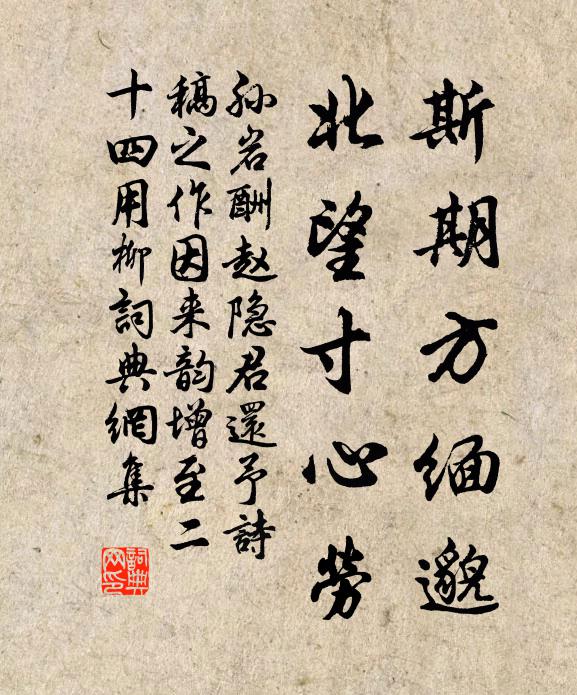 斯期方緬邈
北望寸心勞
孙岩酬赵隐君還予詩
稿之作因来韵增至二
十四用柳詞典網集
詞典网印